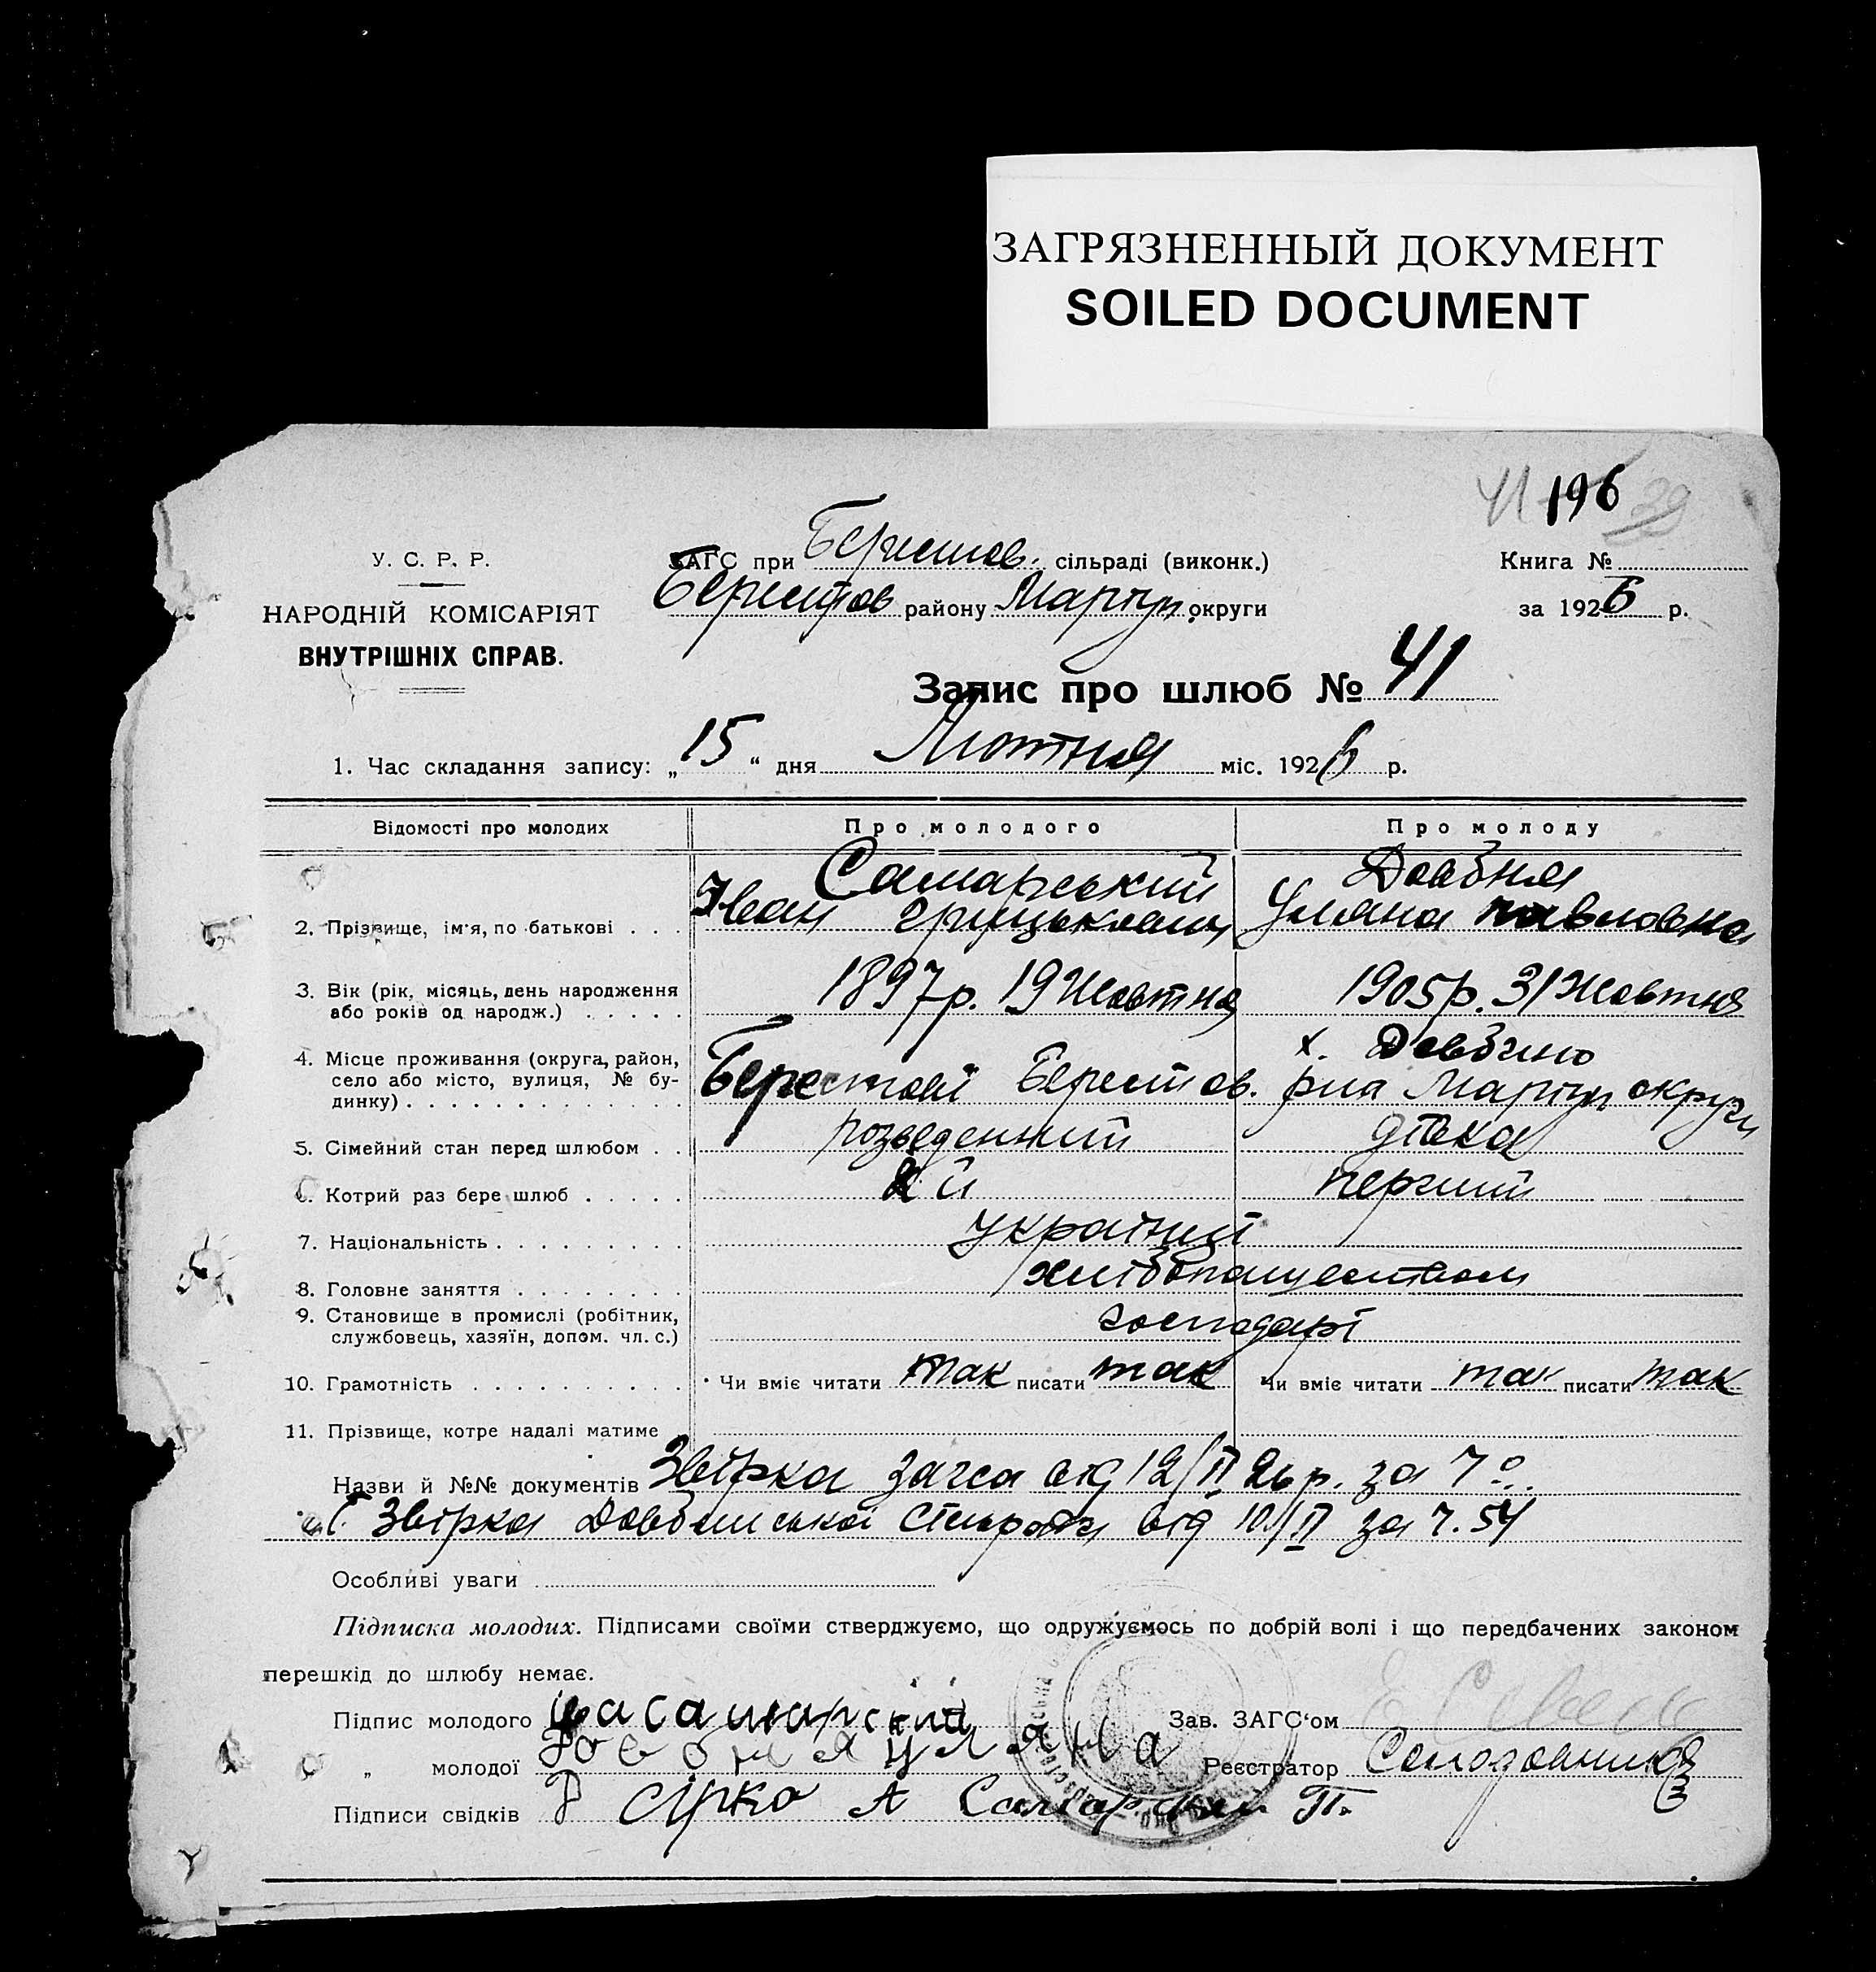 ЗАГРЯЗНЕННЫЙ ДОКУМЕНТ
SOILED DOCUMENT
41 196 39
У. С. Р. Р.
НАРОДНІЙ КОМІСАРІЯТ
ВНУТРІШНІХ СПРАВ.
ЗАГС при Берестов. сільраді (виконк.)
Берестов району Маріуп. округи
Книга №
за 1926 р.
Запис про шлюб № 41
1. Час складання запису: „15“ дня Лютня міс. 1926 р.
Відомості про молодих Про молодого Про молоду
2. Прізвище, ім'я, по батькові . . . Самарський Іван Грицькович Довбня Уляна павловна
3. Вік (рік, місяць, день народження або років од народж.) . . . . . 1897р. 19 Жовтня 1905р. 31 Жовтня
4. Місце проживання (округа, район, село або місто, вулиця, № будинку) . . . Берестові Берестов. х. Довбино рна Маріуп округи
5. Сімейний стан перед шлюбом . . розведенний дівка
6. Котрий раз бере шлюб . . . . . 2й перший
7. Національність . . . . . . . . . україниці
8. Головне заняття . . . . . . . . хлібопашеством
9. Становище в промислі (робітник, службовець, хазяїн, допом. чл. с.) господарі
10. Грамотність . . . . . . . . . . Чи вміє читати так писати так Чи вміє читати так писати так
11. Прізвище, котре надалі матиме
Назви й №№ документів Звірка загса від 12/II 26 р. за
Звірка Довбинської Сільради від 10/II за ч. 54
Особливі уваги
Підписка молодих. Підписами своїми стверджуємо, що одружуємось по добрій волі і що передбачених законом
перешкід до шлюбу немає.
Підпис молодого самарский Зав. ЗАГС'ом
„ молодої уляна Реєстратор Солодовник
Підписи свідків Р Сірко А Самарский П.